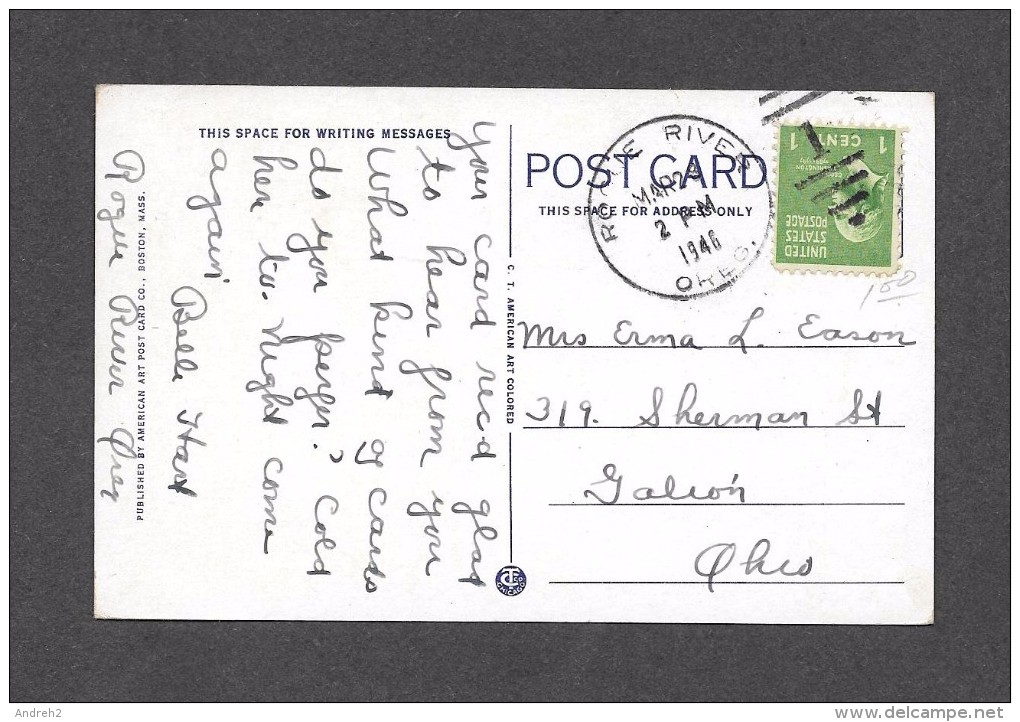 THIS SPACE FOR WRITING MESSAGES
your card rec'd glad
to hear from you
What kind of cards
do you perfer? Cold
here to. Might come
again
Belle Hart
Rogue River Oreg
PUBLISHED BY AMERICAN ART POST CARD CO., BOSTON, MASS.
C. T. AMERICAN ART COLORED
POST CARD
THIS SPACE FOR ADDRESS ONLY
ROGUE RIVER
MAR 2
2 PM
1946
OREG.
1 CENT 1
UNITED
STATES
POSTAGE
100
Mrs Erma L. Eason
319. Sherman St
Galion
Ohio
CT CO
CHICAGO
Andreh2
www.delcampe.net